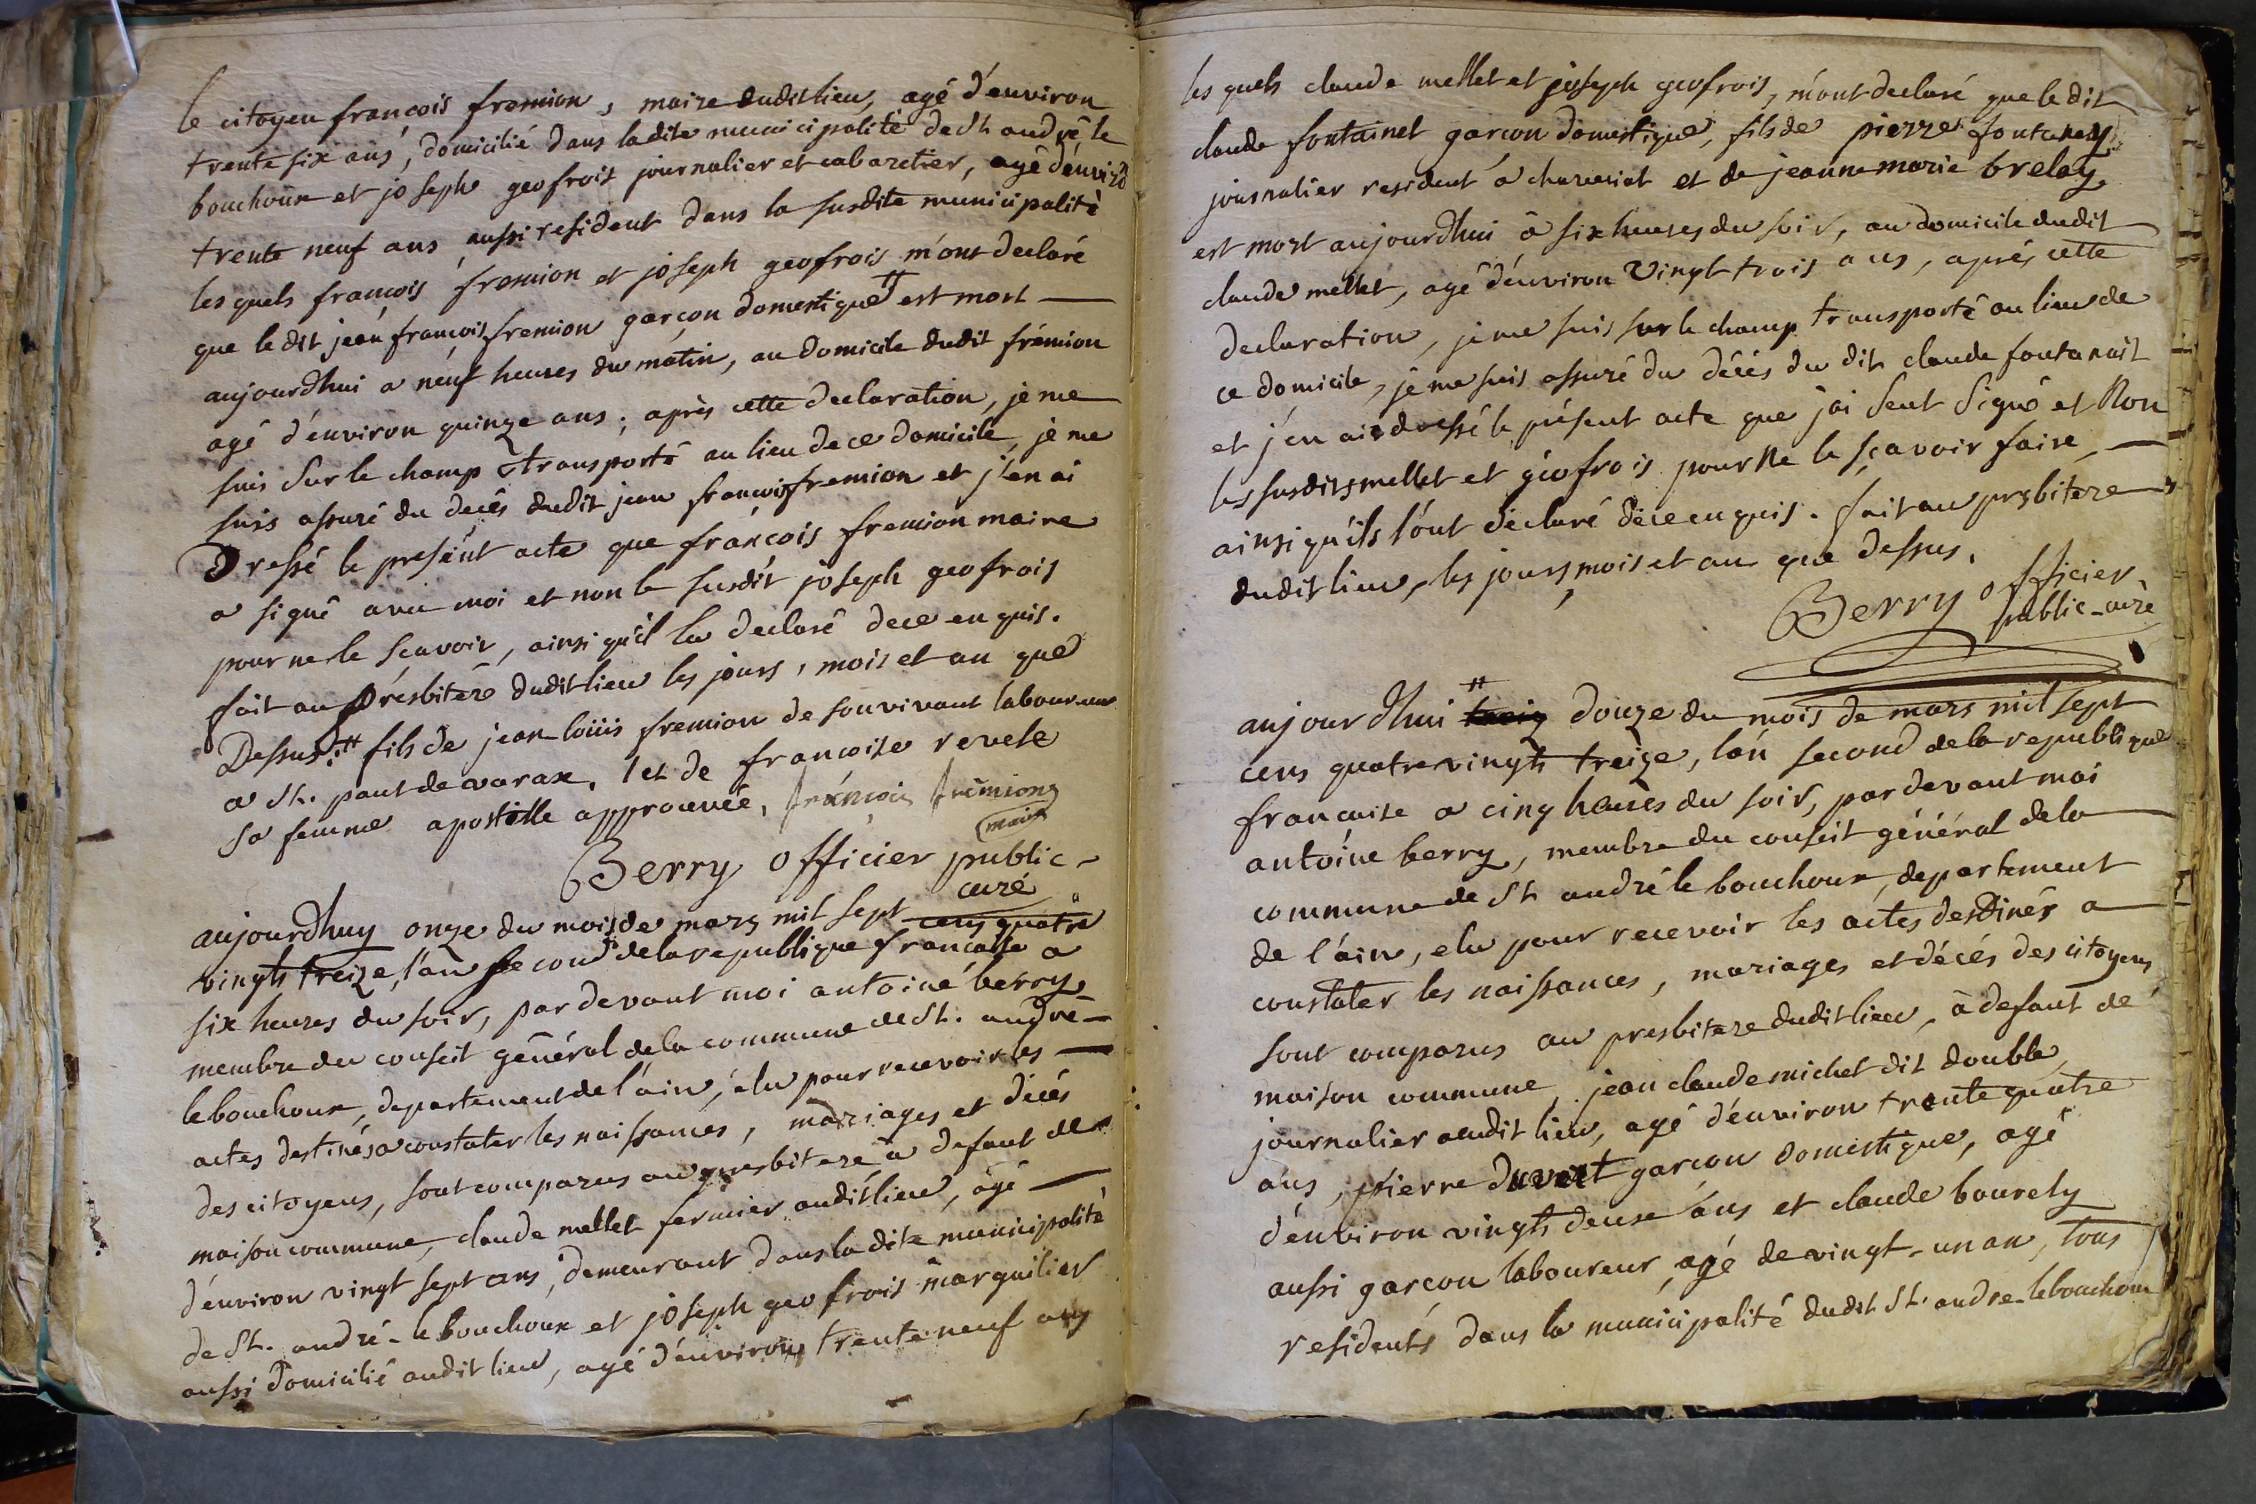 le citoyen françois fremion, maire dudit lieu, agé d'environ
trente six ans, domicilié dans ladite municipalité de St andré le
bouchoux et joseph geofrois journalier et cabaretier, agé d'enviro
trente neuf ans aussi resident dans la susdite municipalité
les quels françois fremion et joseph geofrois m'ont declaré
que le dit jean françois fremion garçon domestique # est mort —
aujourdhui a neuf heures du matin, au domicile dudit frémion
agé d'environ quinze ans; après cette declaration, je me
suis sur le champ transporté au lieu de ce domicile, je me
suis assuré du decès dudit jean françois fremion et j'en ai
Dressé le présent acte que françois fremion maire
a signé avec moi et non le susdit joseph geofrois
pour ne le sçavoir, ainsi qu'il la declaré de ce enquis.
fait au présbitere dudit lieu les jours, mois et an que
Dessus. # fils de jean loüis fremion de son vivant laboureur
a St. paul de varax, et de francoise revele
sa femme apostille approuvée, françois frémion
maire
Berry officier public -
curé
aujourdhuy onze du mois de mars mil sept cens quatre
vingts treize, l'an second de la republique francaise a
six heures du soir, par devant moi antoine berry
membre du conseil général de la commune de St. andré —
le bouchoux, departement de l'ain, élu pour recevoir les —
actes destinés a constater les naissances, mariages et décés
des citoyens, sont comparus au presbitere à defaut de
maison commune, claude mellet fermier audit lieu, agé —
d'environ vingt sept ans, demeurant dans la dite municipalité
de St. andré - le bouchoux et joseph geofrois marguilier
aussi domicilié audit lieu, agé d'environ trente neuf ans
les quels claude mellet et joseph geofrois, m'ont declaré que le dit
claude fontainet garcon domestique, fils de pierre fontanay
journalier resident a chaveriat et de jeanne marie brelay
est mort aujourdhui à six heures du soir, au domicile dudit
claude mellet, agé d'environ vingt trois ans, après cette
declaration, je me suis sur le champ transporté au lieu de
ce domicile, je me suis assuré du décés du dit claude fontanait
et j'en ai dressé le présent acte que j'ai seul signé et Non
les susdits mellet et géofrois pour Ne le sçavoir faire, —
ainsi qu'ils l'ont déclaré de ce enquis. fait au prsbitere
dudit lieu, les jours, mois et an que dessus.
Berry officier
public - curé
aujourdhui # treiz douze du mois de mars mil sept
cens quatre vingts treize, l'an second de la republique
francaise a cinq heures du soir, par devant moi
antoine berry, membre du conseil général de la
commune de St andré le bouchoux, departement
de l'ain, elu pour recevoir les actes destinés a —
constater les naissances, mariages et décés des citoyens
sont comparus au presbitere dudit lieu, à defaut de
maison commune, jean claude michel dit double,
journalier audit lieu, agé d'environ trente quatre
ans, pierre garcon domestique, agé
d'environ vingts deux ans et claude bourely
aussi garcon laboureur, agé de vingt - un an, tous
residents dans la municipalité dudit St. andre - le bouchoux